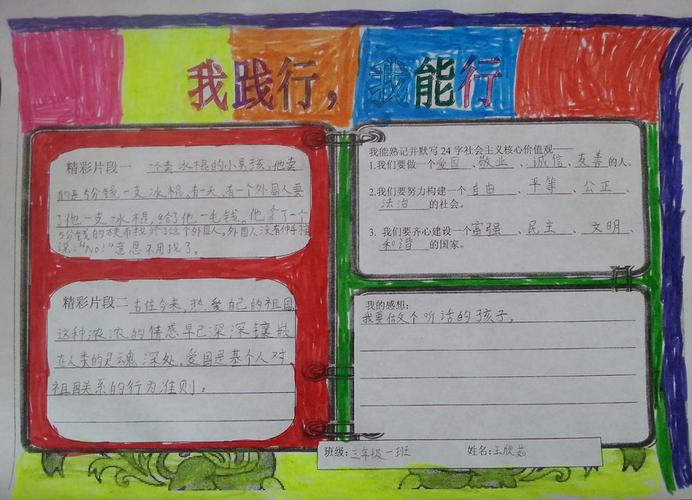 我践行，我能行
精彩片段一 一个卖冰棍的小男孩,他卖
的是5分钱一支冰棍,有一天,有一个外国人要
了他一支冰棍,给了他一毛钱,他拿了一个
5分钱的硬币找给了这个外国人,外国人没有伸手接
说:"No!"意思不用找了。
精彩片段二 古往今来,热爱自己的祖国
这种浓浓的情感早已深深镶嵌
在人类的灵魂深处,爱国是基个人对
祖国关系的行为准则。
我能熟记并默写24字社会主义核心价值观——
1.我们要做一个爱国、敬业、诚信、友善的人。
2.我们要努力构建一个自由、平等、公正、
法治的社会。
3. 我们要齐心建设一个富强、民主、文明、
和谐的国家。
我的感想:
我要做个听话的孩子。
班级: 三年级一班 姓名: 王欣茹